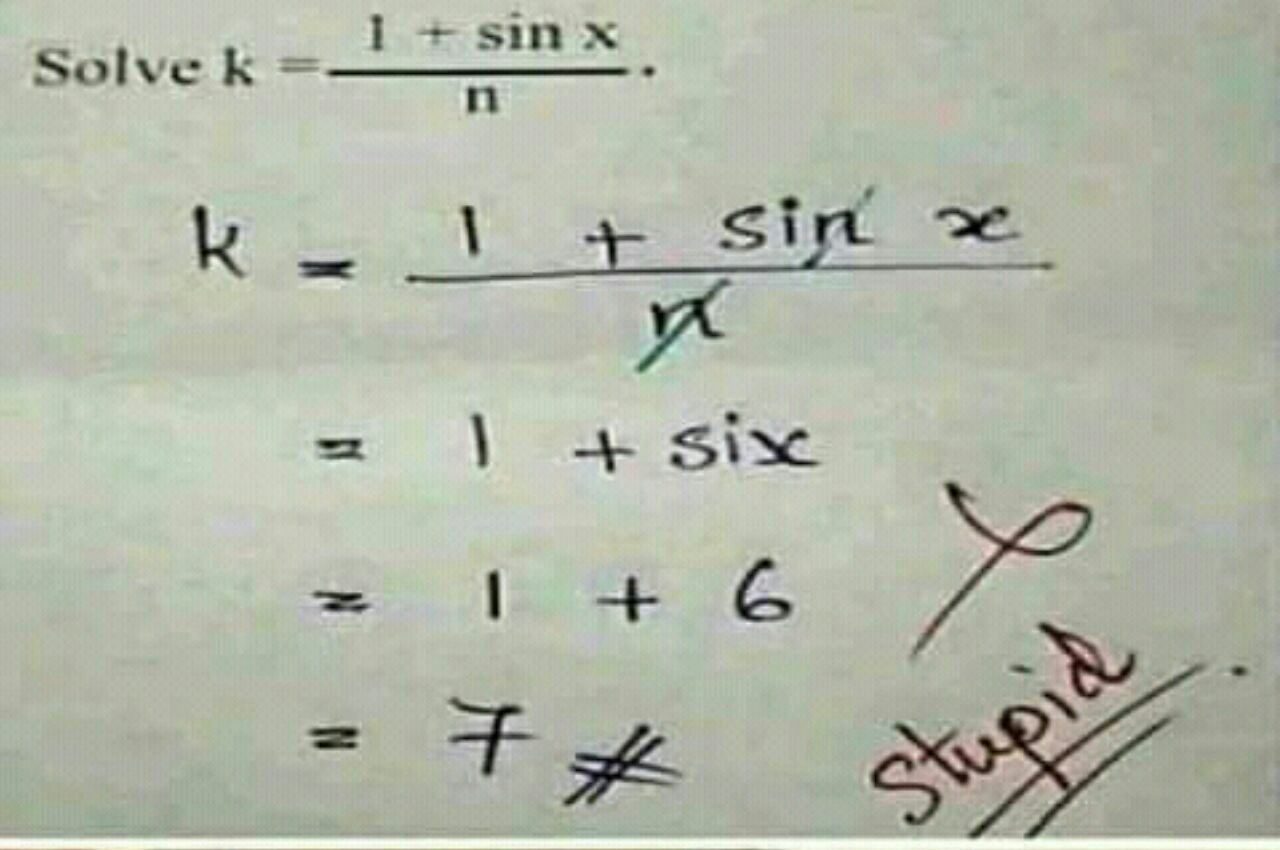 Solve k = 1 + sin x / n .
k = 1 + sin x / n
= 1 + six
= 1 + 6
= 7
Stupid